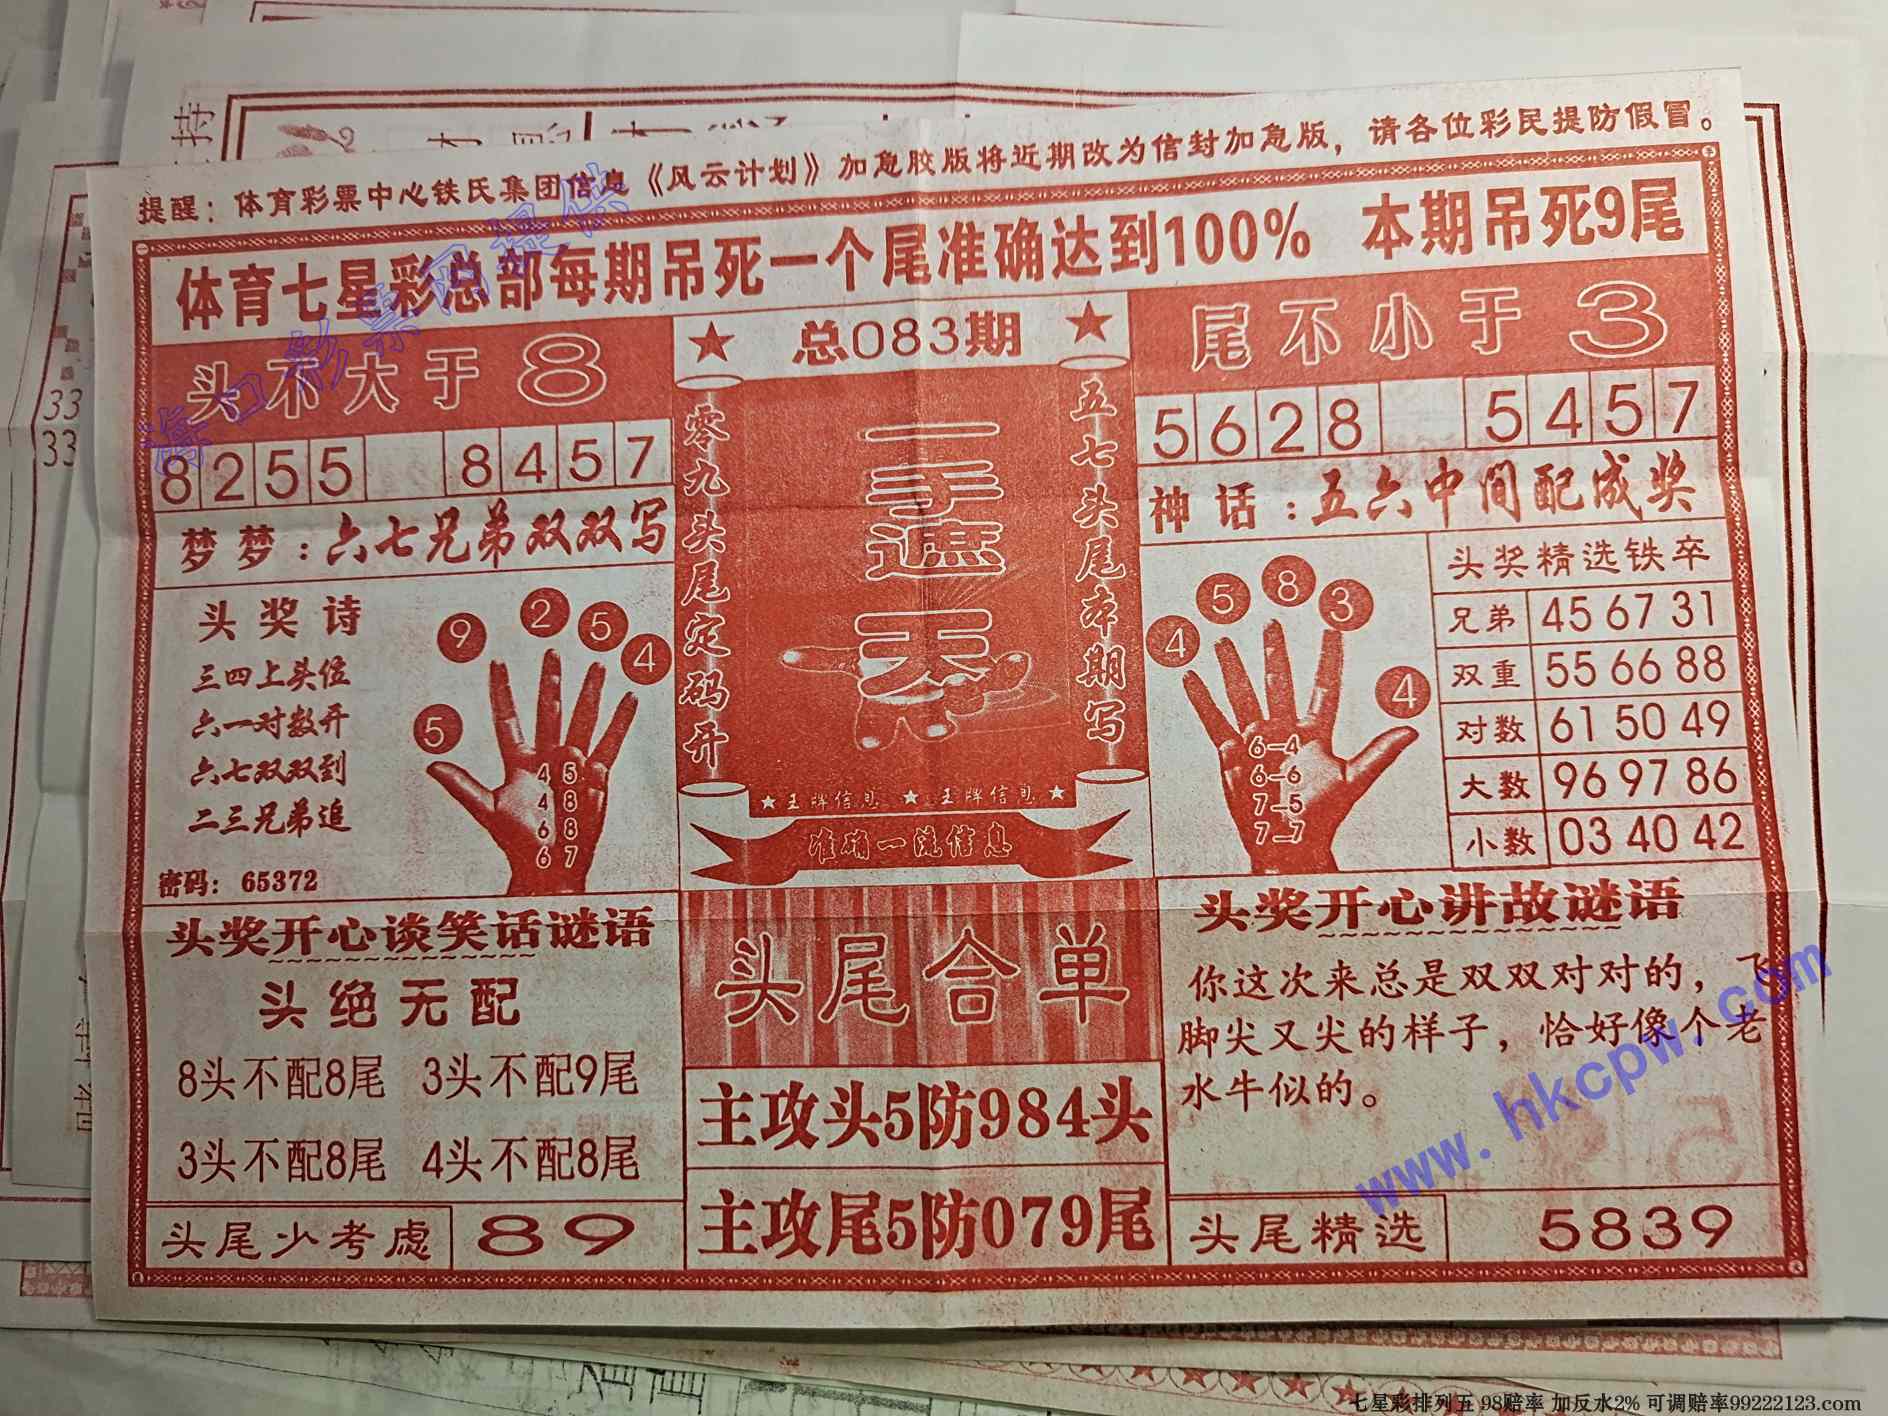 提醒：体育彩票中心铁氏集团信息《风云计划》加急胶版将近期改为信封加急版，请各位彩民提防假冒。
体育七星彩总部每期吊死一个尾准确达到100% 本期吊死9尾
头不大于8
8255 8457
梦梦：六七兄弟双双写
头奖诗
三四上头位
六一对数开
六七双双到
二三兄弟追
密码：65372
9 2 5 4
5
4 5
4 8
6 8
6 7
★ 总083期 ★
零九头尾定码开
一手遮天
五七头尾本期写
★王牌信息 ★ 王牌信息★
准确一流信息
尾不小于3
5628 5457
神话：五六中间配成奖
4 5 8 3
4
6–4
6–6
7–5
7–7
头奖精选铁卒
兄弟 45 67 31
双重 55 66 88
对数 61 50 49
大数 96 97 86
小数 03 40 42
头奖开心谈笑话谜语
头绝无配
8头不配8尾 3头不配9尾
3头不配8尾 4头不配8尾
头尾少考虑 89
头尾合单
主攻头5防984头
主攻尾5防079尾
头奖开心讲故谜语
你这次来总是双双对对的，飞
脚尖又尖的样子，恰好像个老
水牛似的。
头尾精选 5839
海口彩票网提供
www.hkcpw.com
33
33
持
七星彩排列五 98赔率 加反水2% 可调赔率99222123.com